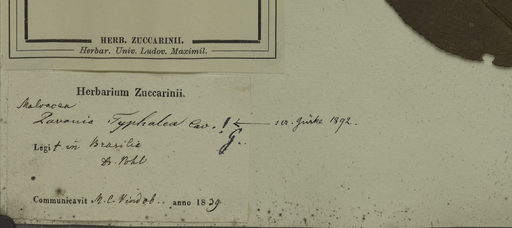 HERB. ZUCCARINII.
Herbar. Univ. Ludov. Maximil.
Herbarium Zuccarinii.
Malvacea
Pavonia Typhalea Cav. ! ← scr. Gürke 1892.
G.
Legit in Brasilia
D. Pohl
Communicavit M. C. Vindob.. anno 1839